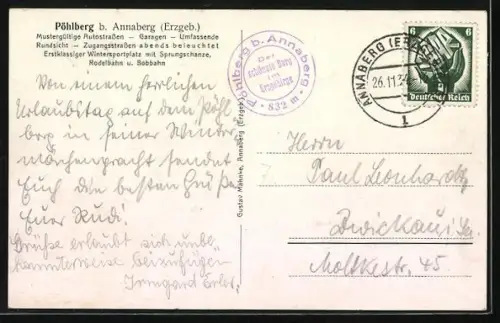 Pöhlberg b. Annaberg (Erzgeb.)
Mustergültige Autostraßen – Garagen – Umfassende
Rundsicht – Zugangsstraßen abends beleuchtet
Erstklassiger Wintersportplatz mit Sprungschanze,
Rodelbahn u. Bobbahn
Von einem herrlichen
Urlaubstag auf dem Pöhl
berg in seiner Winter
märchenpracht sendet
Euch die besten Grüße
Euer Rudi!
Grüße erlaubt sich unbe„
kannterweise beizufügen
Irmgard
Gustav Mahnke, Annaberg (Erzgeb.)
Pöhlberg b. Annaberg
Der
schönste Berg
im
Erzgebirge
832 m
ANNABERG (ERZGEB)
26.11.34
1
6 6
Deutsches Reich
Herrn
Paul Leonhardt
Zwickau i. Sa.
Moltkestr. 45